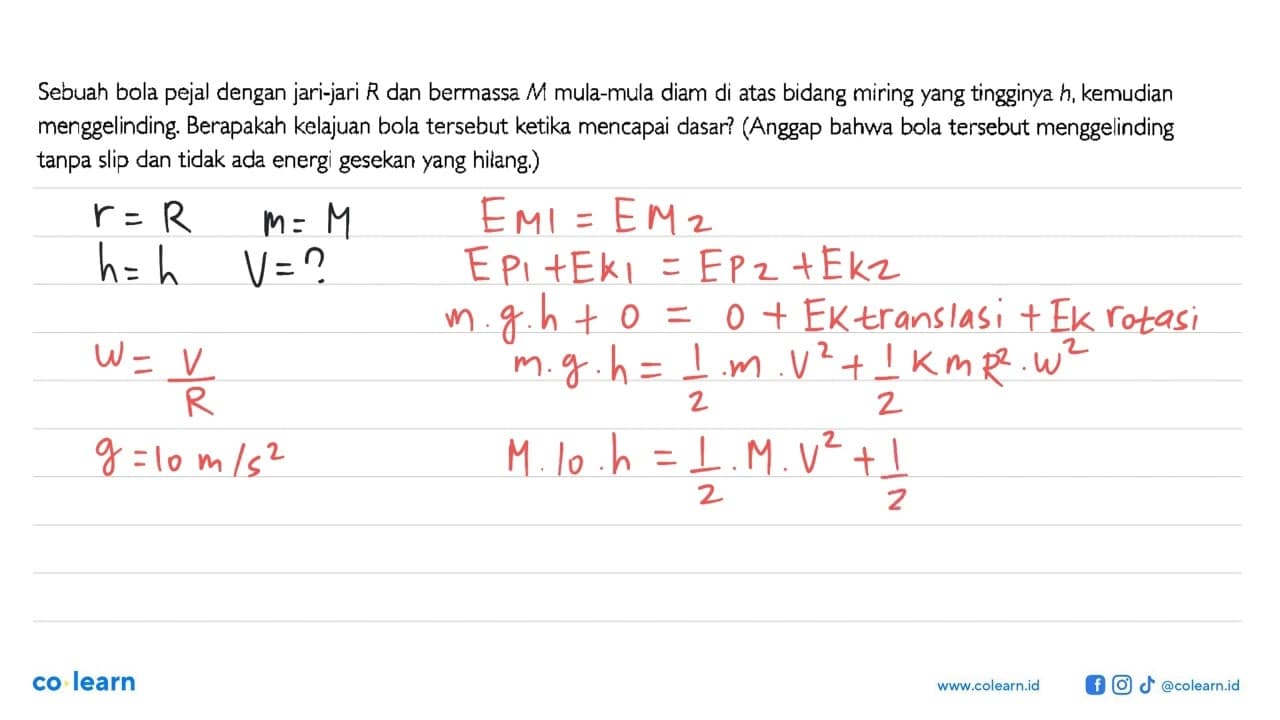 Sebuah bola pejal dengan jari-jari R dan bermassa M mula-mula diam di atas bidang miring yang tingginya h, kemudian
menggelinding. Berapakah kelajuan bola tersebut ketika mencapai dasar? (Anggap bahwa bola tersebut menggelinding
tanpa slip dan tidak ada energi gesekan yang hilang.)
r = R m = M
h = h V = ?
W = V/R
g = 10 m/s²
EM1 = EM2
EP1 + EK1 = EP2 + EK2
m.g.h + 0 = 0 + EK translasi + EK rotasi
m.g.h = 1/2 .m.V² + 1/2 K m R².W²
M.10.h = 1/2 .M.V² + 1/2
co learn
www.colearn.id
@colearn.id